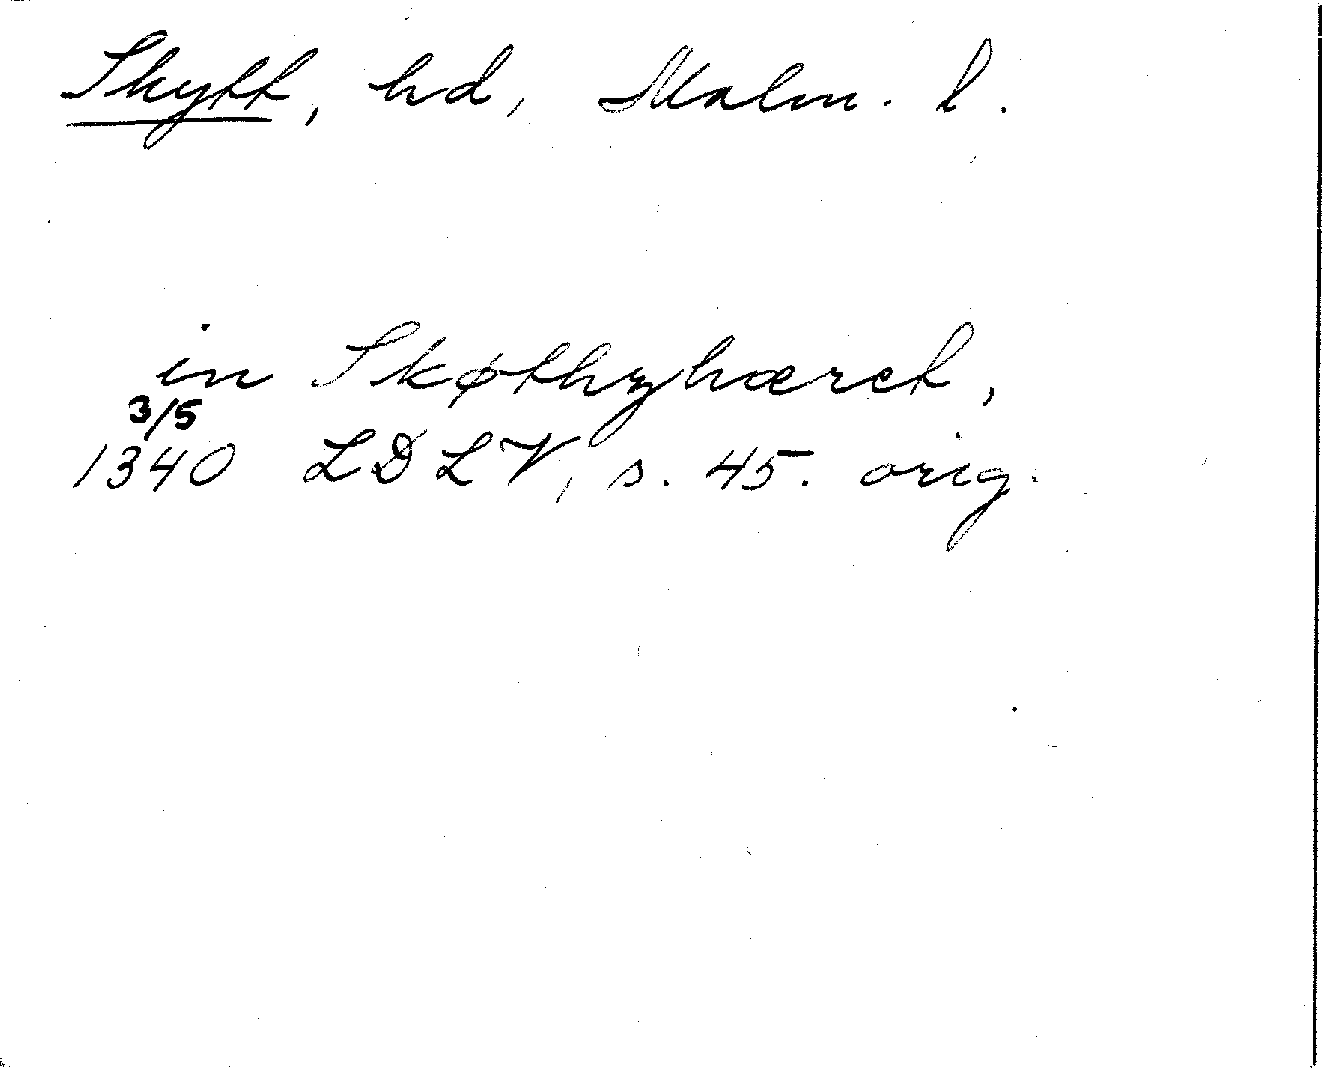 Skytt, hd, Malm. l.
in Skøthzhæret,
3/5
1340 LDLV, s. 45. orig.